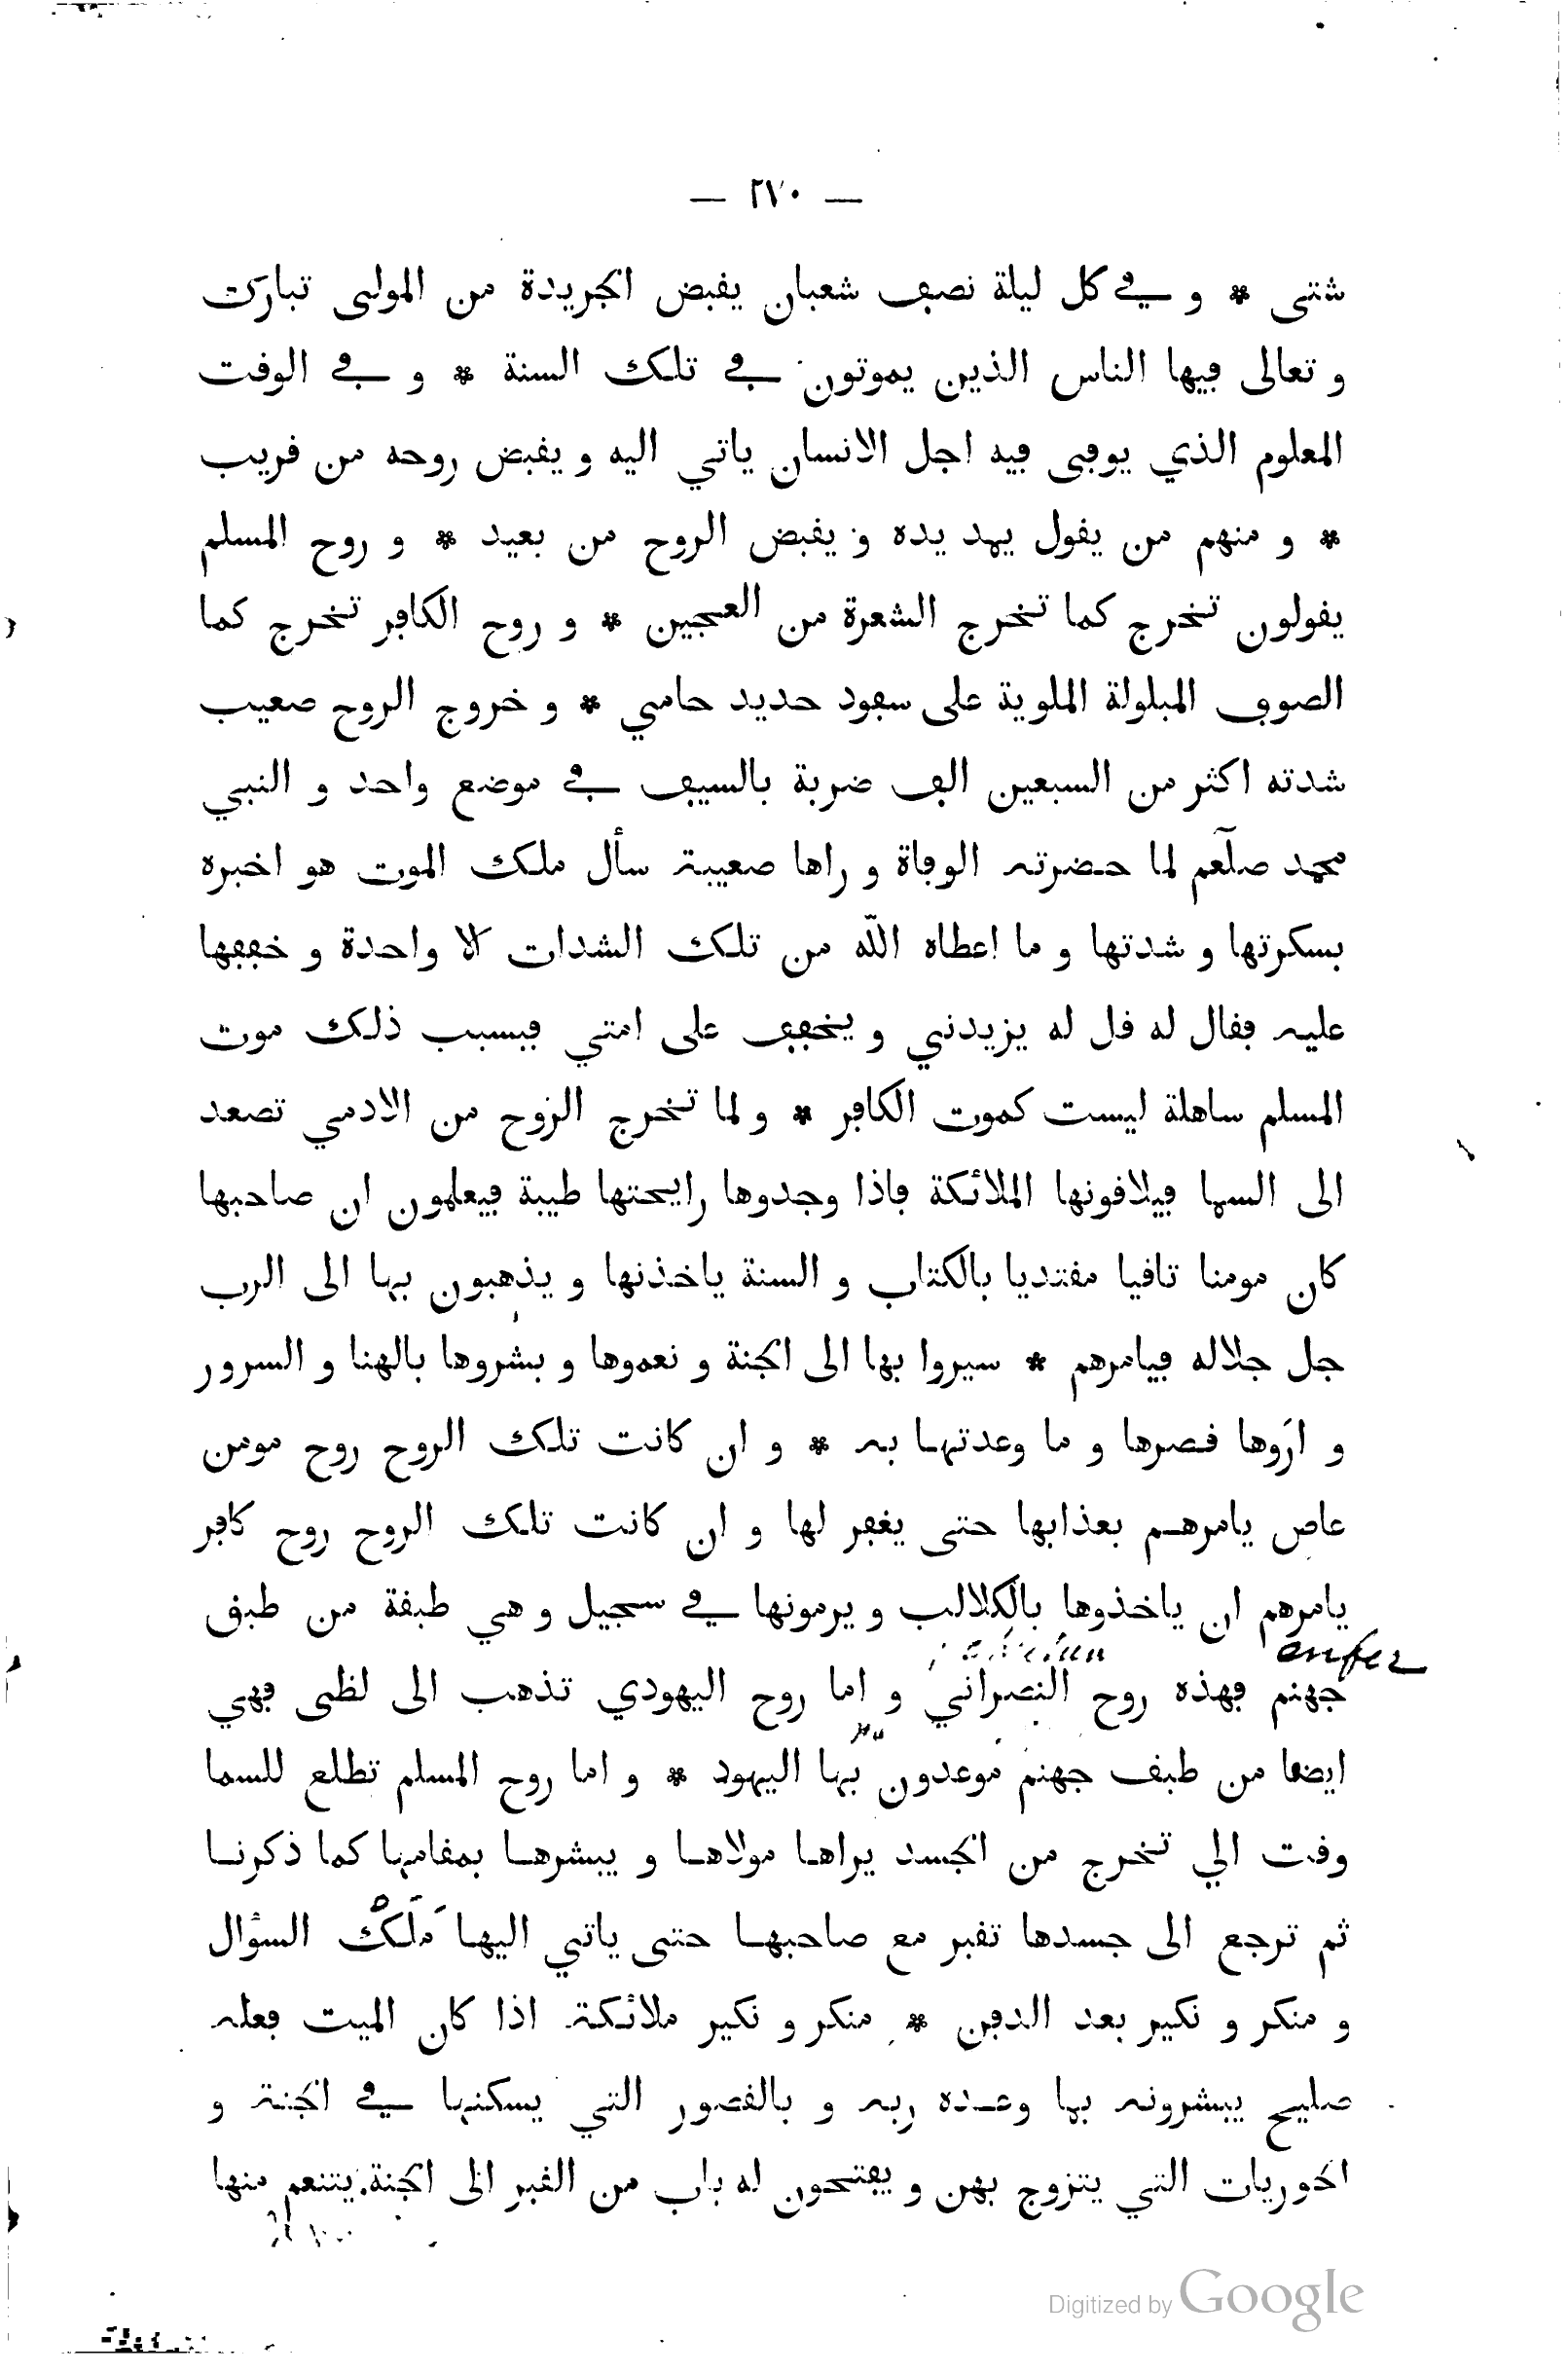 — ٢٧٠ —
شتى * و في كل ليلة نصف شعبان يقبض الجريدة من المولى تبارك
و تعالى فيها الناس الذين يموتون في تلك السنة * و في الوقت
المعلوم الذي يوفى فيه اجل الانسان ياتي اليه و يقبض روحه من قريب
* و منهم من يقول يهد يده و يقبض الروح من بعيد * و روح المسلم
يقولون تخرج كما تخرج الشعرة من العجين * و روح الكافر تخرج كما
الصوف المبلولة الملوية على سفود حديد حامي * و خروج الروح صعيب
شدته اكثر من السبعين الف ضربة بالسيف في موضع واحد و النبي
محمد صلعم لما حضرته الوفاة و راها صعيبة سأل ملك الموت هو اخبره
بسكرتها و شدتها و ما اعطاه الله من تلك الشدات كلا واحدة و خففها
عليه فقال له قل له يزيدني و يخفف على امتي فبسبب ذلك موت
المسلم ساهلة ليست كموت الكافر * و لما تخرج الروح من الادمي تصعد
الى السما فيلاقونها الملائكة فاذا وجدوها رايحتها طيبة فيعلمون ان صاحبها
كان مومنا تاقيا مقتديا بالكتاب و السنة ياخذنها و يذهبون بها الى الرب
جل جلاله فيامرهم * سيروا بها الى الجنة و نعموها و بشروها بالهنا و السرور
و ارَوها قصرها و ما وعدتها به * و ان كانت تلك الروح روح مومن
عاص يامرهم بعذابها حتى يغفر لها و ان كانت تلك الروح روح كافر
يامرهم ان ياخذوها بالكلالب و يرمونها في سجيل و هي طبقة من طبق
enfer
جهنم فهذه روح النصراني و اما روح اليهودي تذهب الى لظى فهي
ايضا من طبق جهنم موعدون بها اليهود * و اما روح المسلم تطلع للسما
وقت الي تخرج من الجسد يراها مولاها و يبشرها بمقامها كما ذكرنا
ثم ترجع الى جسدها تقبر مع صاحبها حتى ياتي اليها مَلَكْ السؤال
و منكر و نكير بعد الدفن * منكر و نكير ملائكة اذا كان الميت فعله
صليح يبشرونه بها وعده ربه و بالقصور التي يسكنها في الجنة و
الحوريات التي يتزوج بهن و يفتحون له باب من القبر الى الجنة يتنعم منها
Digitized by Google